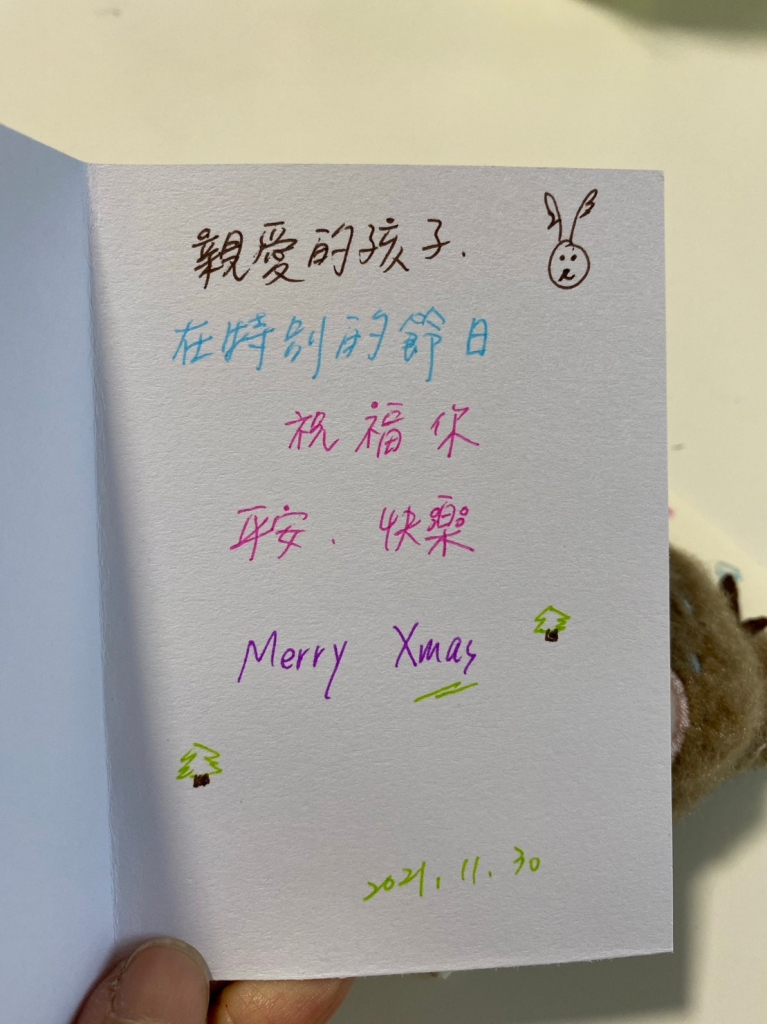 親愛的孩子.
在特別的節日
祝福你
平安.快樂
Merry Xmas
2021.11.30